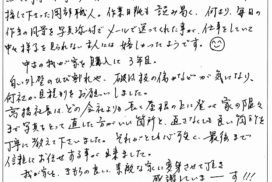 指して下さった岡部職人。作業日報も読み易く、何より、毎日の
作業の風景を写真添付でメールで送ってくれた事が、仕事をしていて
中々様子を見られない主人には嬉しかったようです。☺
中古の我が家を購入して3年目。
白い外壁のひび割れや、破風板の傷などが気になり、
何社か見積りをお願いしました。
高橋社長は、どの会社よりも長く屋根の上に登って家の隅々
まで写真をとって直した方がいい箇所と、直さなくても良い箇所を
丁寧に教えて下さいました。それがとても心強く、最後まで
信頼してお任せする事が出来ました。
我が家も、まちの良い、素敵な家に変身させて頂き
感謝していまーす!!!